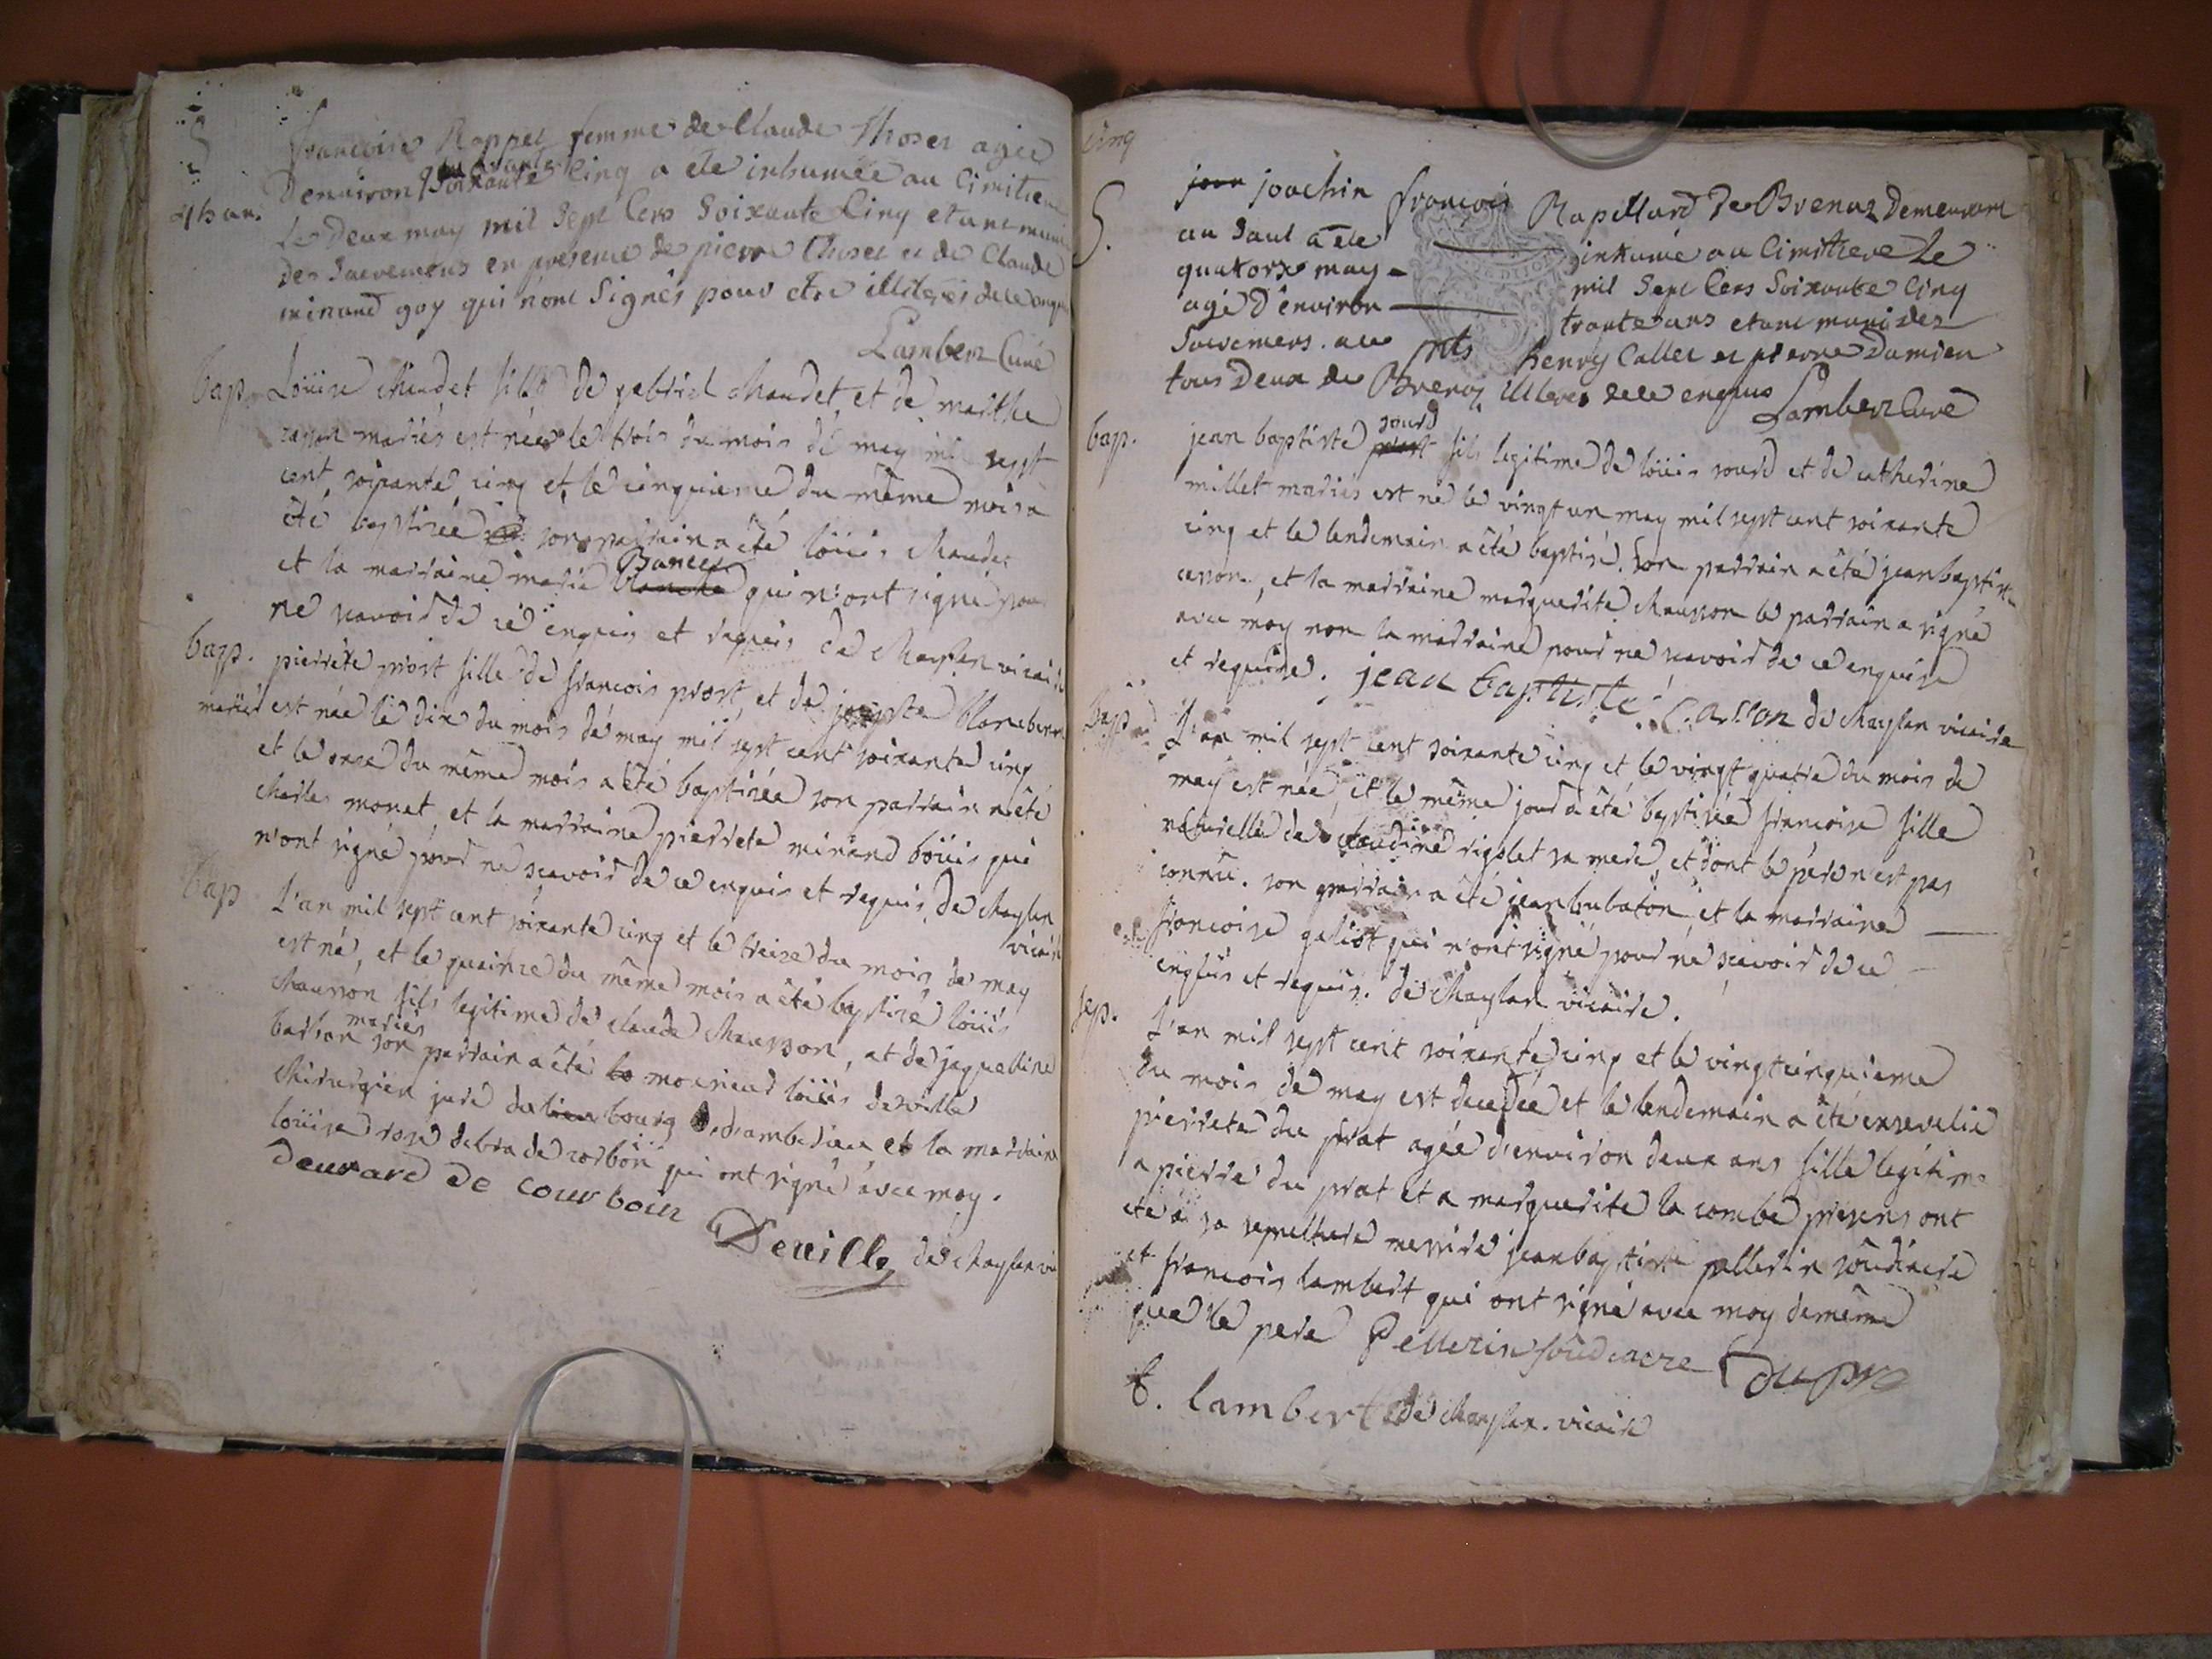 S
francoise Roppet femme de Claude Thoset agée
D'environ quarante Cinq a ete inhumée au Cimitiere
45 an. le Deux may mil Sept Cens Soixante Cinq etant munie
Des Sacremens en presence de pierre Thoset et de Claude
minand goy qui n'ont Signés pour etre illiteres de ce enquis
Lambert Curé
bap. Loüise Chaudet fille de gabriel Chaudet, et de marthe
casson mariés est née le trois du mois de may mil sept
cent soixante cinq et le cinquieme du même mois a
été baptisée son parrain a été loüis Chaudet
Bancet
et la marraine marie blanche qui n'ont signé pour
ne scavoir de ce enquis et requis de Chaylan vicaire
bap. pierrete prost fille de francois prost, et de josepte
mariés est née le dix du mois de may mil sept cent soixante cinq
et le onze du même mois a été baptisée son parrain a été
Charles monet, et la marraine pierrete minand boüis qui
n'ont signé pour ne scavoir de ce enquis et requis. de Chaylan
vicaire
bap L'an mil sept cent soixante cinq et le treize du mois de may
est né, et le quinze du même mois a été baptisé loüis
Chausson fils legitime de claude Chausson, et de jaquelline
mariés
barbon son parrain a été le monsieur loüis deville
Chirurgien juré du lieu bourg d'ambérieu et la marraine
loüise rose debra de corboü qui ont signé avec moy.
Deurard De courbouz
Deville de Chaylan vic
cinq
S. jean joachin françois Rapillard De Brenaz Demeurant
au Saul a ete inhumé au Cimitiere le
quatorze may mil Sept Cens Soixante Cinq
agé D'environ trante ans etant muni des
Sacremens. avec pnts henry Callet et pierre Damien
tous Deux de Brenaz illiteres de ce enquis Lambert Curé
sourd
bap. jean baptiste prost fils legitime de loüis sourd et de catherine
millet mariés est né le vingt un may mil sept cent soixante
cinq et le lendemain a été baptisé. son parrain a été jean baptiste
casson, et la marraine marguerite Chausson le parrain a signé
avec moy non la marraine pour ne scavoir de ce enquise
et requise. jean baptiste Casson de Chaylan vicaire
bap. L'an mil sept cent soixante cinq et le vingt quatre du mois de
may est née, et le même jour a été baptisée francoise fille
naturelle de claudine rigolet sa mere, et dont le père n'est pas
connu. son parrain a été jean bubaton, et la marraine
francoise galiot qui n'ont signé pour ne scavoir de ce
enquis et requis. de Chaylan vicaire.
sep. L'an mil sept cent soixante cinq et le vingtcinquieme
du mois de may est decedée et le lendemain a été ensevelie
pierrete du prat agée d'environ deux ans fille legitime
a pierre du prat et a marguerite la combe presens ont
été a sa sepulture messire jean baptiste pellerin soudiacre
et francois lambert qui ont signé avec moy de même
que le pere Pellerin soudiacre Dupra
f. lambert de Chaylan. vicaire